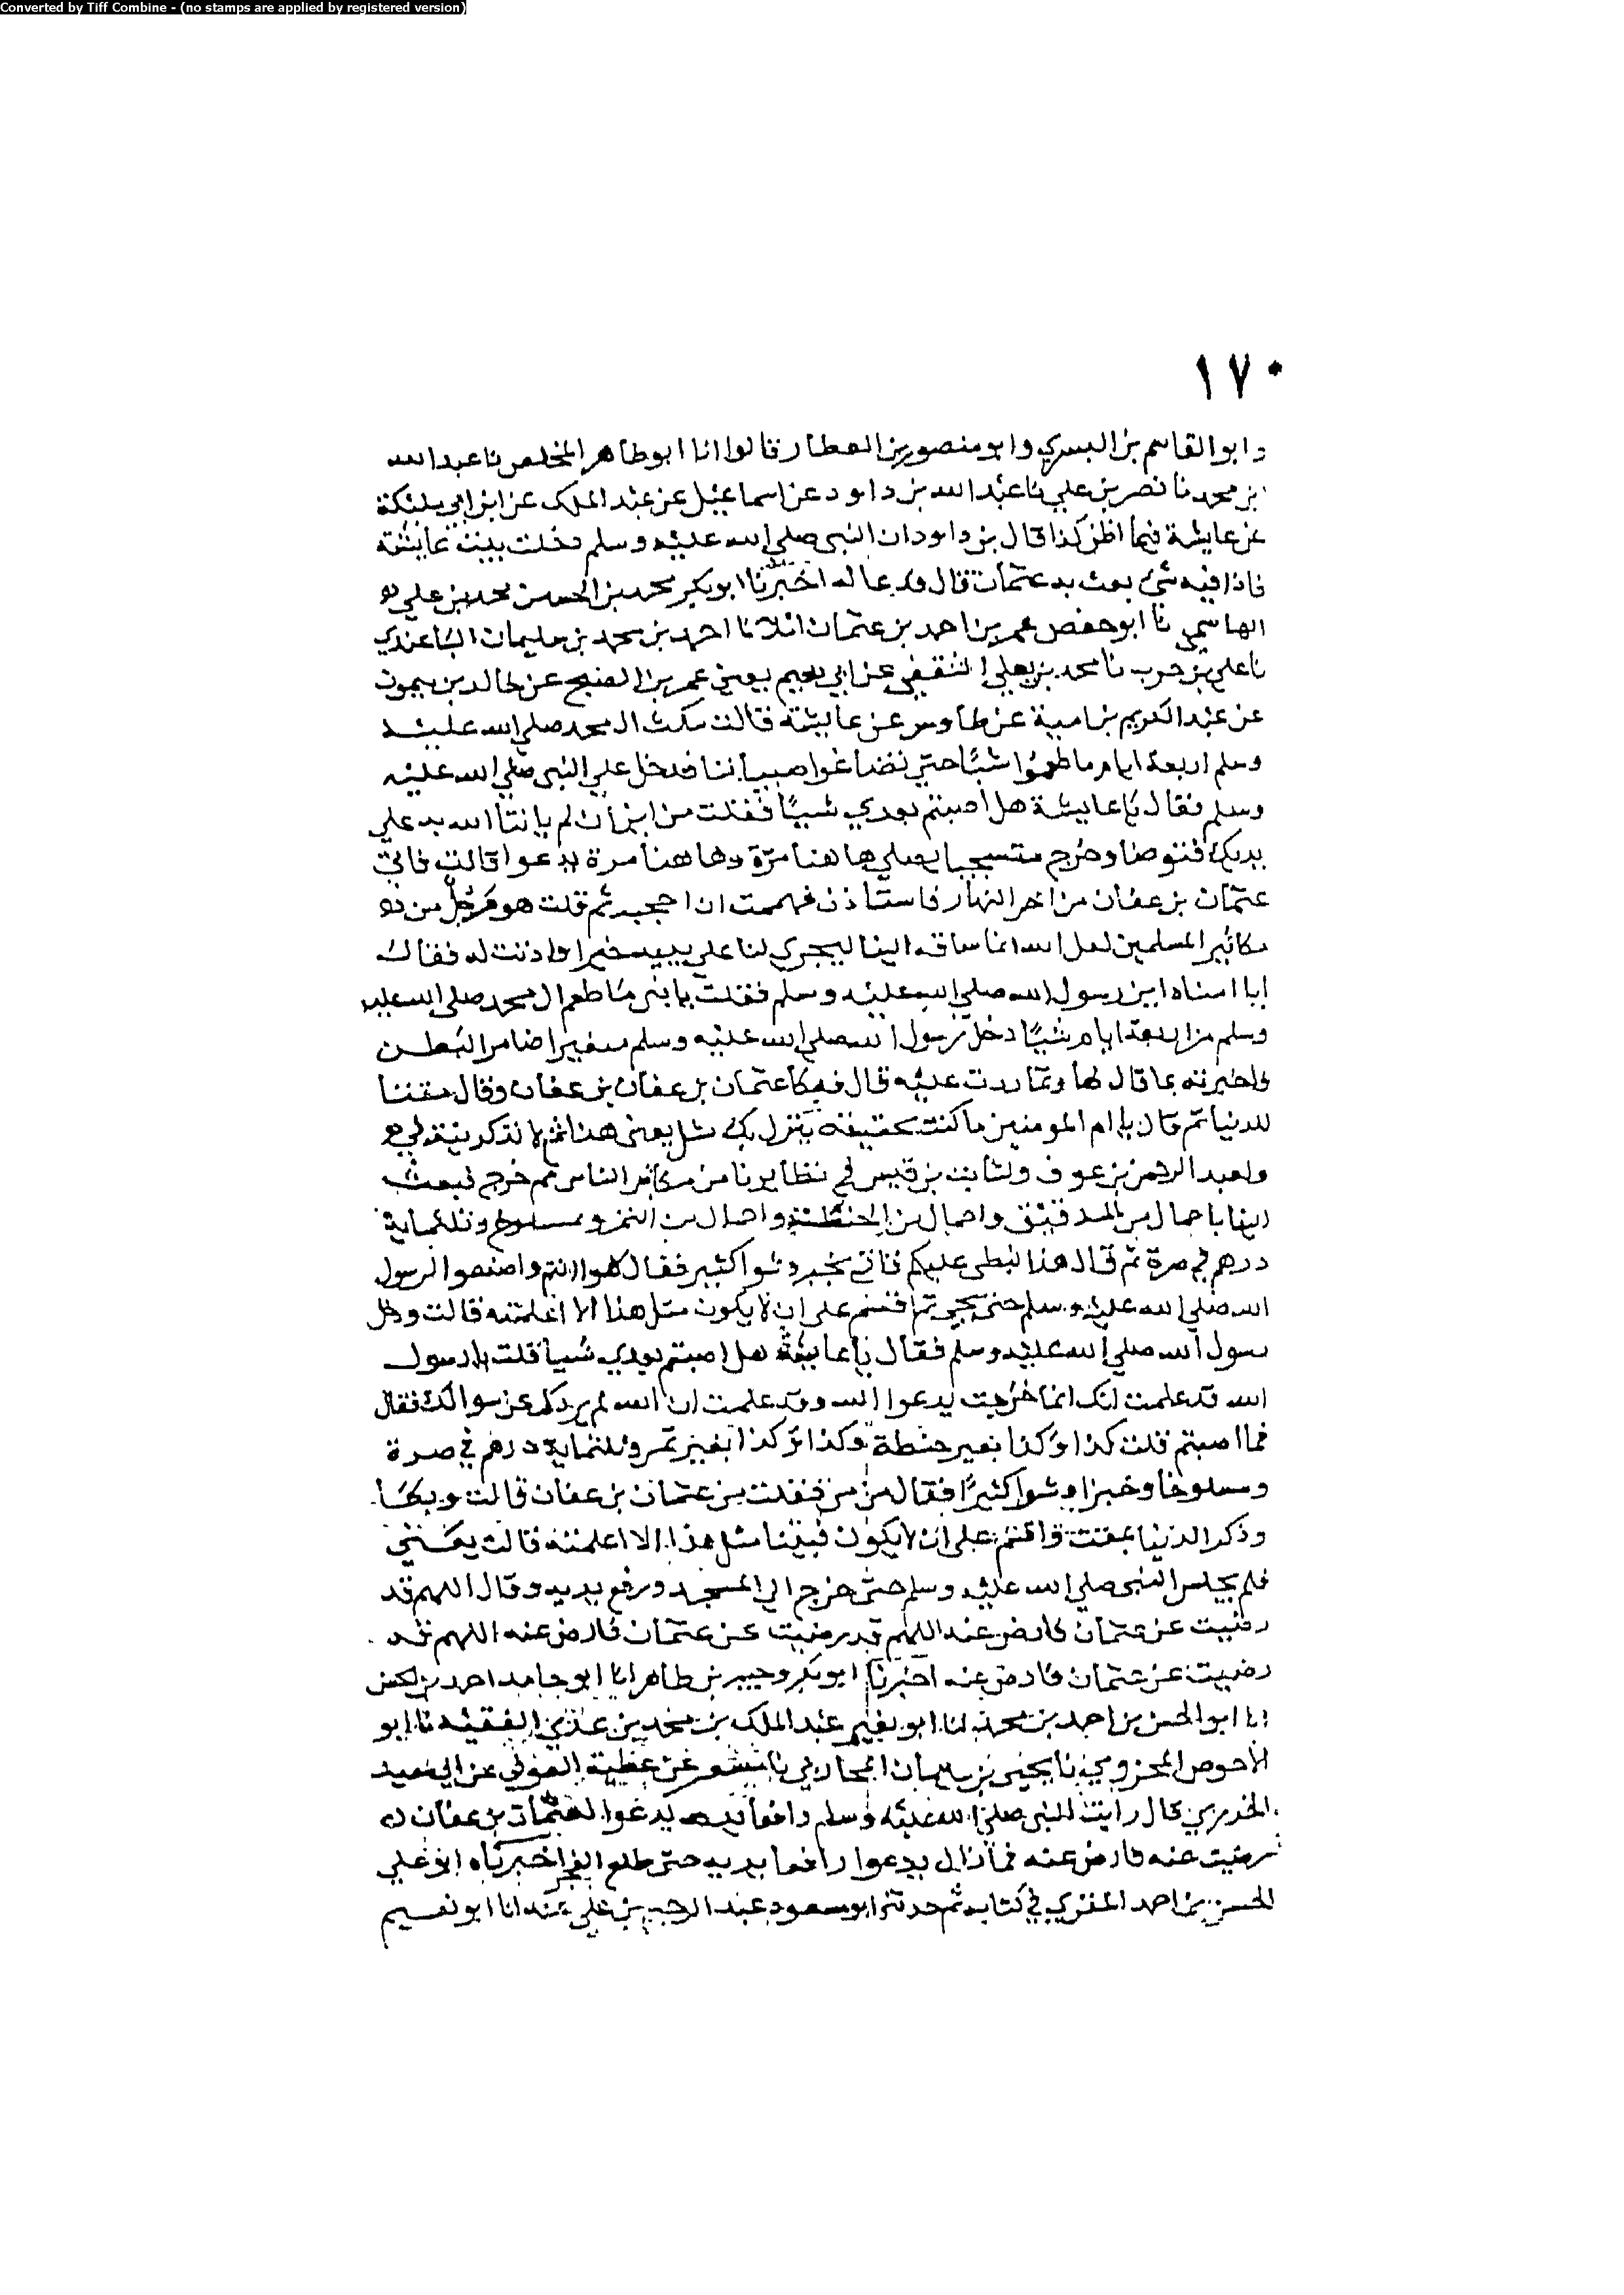 Converted by Tiff Combine - (no stamps are applied by registered version)
١٧٠
وابو القاسم بن البسري وابو منصور بن العطار قالوا انا ابو طاهر المخلص نا عبد الله
بن محمد نا نصر بن علي نا عبد الله بن داود عن اسماعيل عن عبد الملك عن ابن ابي مليكة
عن عايشة فيما اظن كذا قال بن داود ان النبي صلى الله عليه وسلم دخلت بيت عايشة
فاذا فيه شي بعث به عثمان قال فدعا له اخبرنا ابو بكر محمد بن الحسين محمد بن علي
الهاشمي نا ابو حفص عمر بن احمد بن عثمان املا نا احمد بن محمد بن سليمان الباغندي
نا علي بن حرب نا محمد بن يعلى الثقفي عن ابي نعيم يعني عمر بن الصبح عن خالد بن ميمون
عن عبد الكريم بن امية عن طاوس عن عايشة قالت مكث ال محمد صلى الله عليه
وسلم اربعة ايام ما طعموا شيًا حتى تضاغوا صبياننا فدخل علي النبي صلى الله عليه
وسلم فقال يا عايشة هل اصبتم بعدي شيًا فقلت من اين ان لم ياتنا الله به على
يديك فتوضا وخرج متسجيا يصلي هاهنا مرة وهاهنا مرة يدعوا قالت فاتى
عثمان بن عفان من اخر النهار فاستاذن فهممت ان احجبه ثم قلت هو رجل من
مكاثير المسلمين لعل الله انما ساقه الينا ليجري لنا على يديه خيرا فاذنت له فقال
يا امتاه اين رسول الله صلى الله عليه وسلم فقلت يا بني ما طعم ال محمد صلى الله عليه
وسلم من اربعة ايام شيًا دخل رسول الله صلى الله عليه وسلم متغيرا ضامر البطن
فاخبرته بما قال لها وبما ردت عليه قال فبكا عثمان بن عفان بن عفان وقال مقتا
للدنيا ثم قال يا ام المومنين ما كنت بحقيقة ينزل بك مثل يعني هذا ثم لا تذكرينه لي
ولعبد الرحمن بن عوف ولثابت بن قيس في نظايرنا من مكاثر الناس ثم خرج فبعث
الينا باحمال من الدقيق واحمال من الحنطة واحمال من التمر ومسلوخ وثلثماية
درهم في صرة ثم قال هذا يبطي عليكم فاتى بخبز وشوا كثير فقال كلوا انتم واصنعوا لرسول
الله صلى الله عليه وسلم حتى يجي ثم اقسم علي ان لا يكون مثل هذا الا اعلمته قالت ودخل
رسول الله صلى الله عليه وسلم فقال يا عايشة هل اصبتم بعدي شيا قلت يا رسول
الله قد علمت انك انما خرجت يدعوا الله وقد علمت ان الله لم يردك عن سوالك فقال
فما اصبتم قلت كذا وكذا بعير حنطة وكذا وكذا بعير تمر وثلثماية درهم في صرة
ومسلوخا وخبزا وشوا كثيرًا فقال من من فقلت من عثمان بن عفان قالت وبكا
وذكر الدنيا بمقت واقسم علي ان لا يكون فينا مثل هذا الا اعلمته قالت يعني
فلم يجلس النبي صلى الله عليه وسلم حتى خرج الى المسجد ورفع يديه وقال اللهم قد
رضيت عن عثمان فارض عنه اللهم قد رضيت عن عثمان فارض عنه اللهم قد
رضيت عن عثمان فارض عنه اخبرنا ابو بكر وجيه بن طاهر انا ابو حامد احمد بن الحسن
انا ابو الحسن بن احمد بن محمد انا ابو نعيم عبد الملك بن محمد بن عدي الفقيه نا ابو
الاحوص المخزومي نا يحيى بن سليمان المحاربي نا مسعر عن عطية العوفي عن ابي سعيد
الخدري قال رايت النبي صلى الله عليه وسلم رافعا يديه يدعوا لعثمان بن عفان
رضيت عنه فارض عنه فما زال يدعوا رافعا يديه حتى طلع الفجر اخبرناه ابو علي
الحسن بن احمد المقري في كتابه ثم حدثنا ابو مسعود عبد الرحيم بن علي عنه انا ابو نعيم